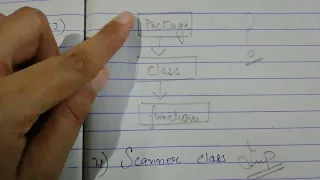 Package
class
functions
4) Scanner class Imp